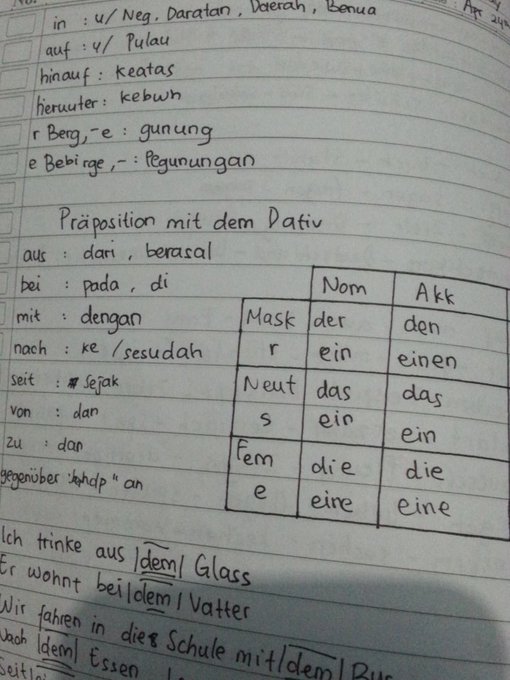 Apr 24
in : u/ Neg, Daratan, Daerah, Benua
auf : u/ Pulau
hinauf : keatas
herunter : kebwh
r Berg,-e : gunung
e Bebirge,- : Pegunungan
Präposition mit dem Dativ
aus : dari, berasal
bei : pada, di
mit : dengan
nach : ke /sesudah
seit : sejak
von : dan
zu : dan
gegenüber : "hdp" an
Nom Akk
Mask der den
r ein einen
Neut das das
s ein ein
Fem die die
e eine eine
Ich trinke aus |dem| Glass
Er wohnt bei |dem| Vatter
Wir fahren in die Schule mit |dem| Bus
Nach |dem| Essen
Seit